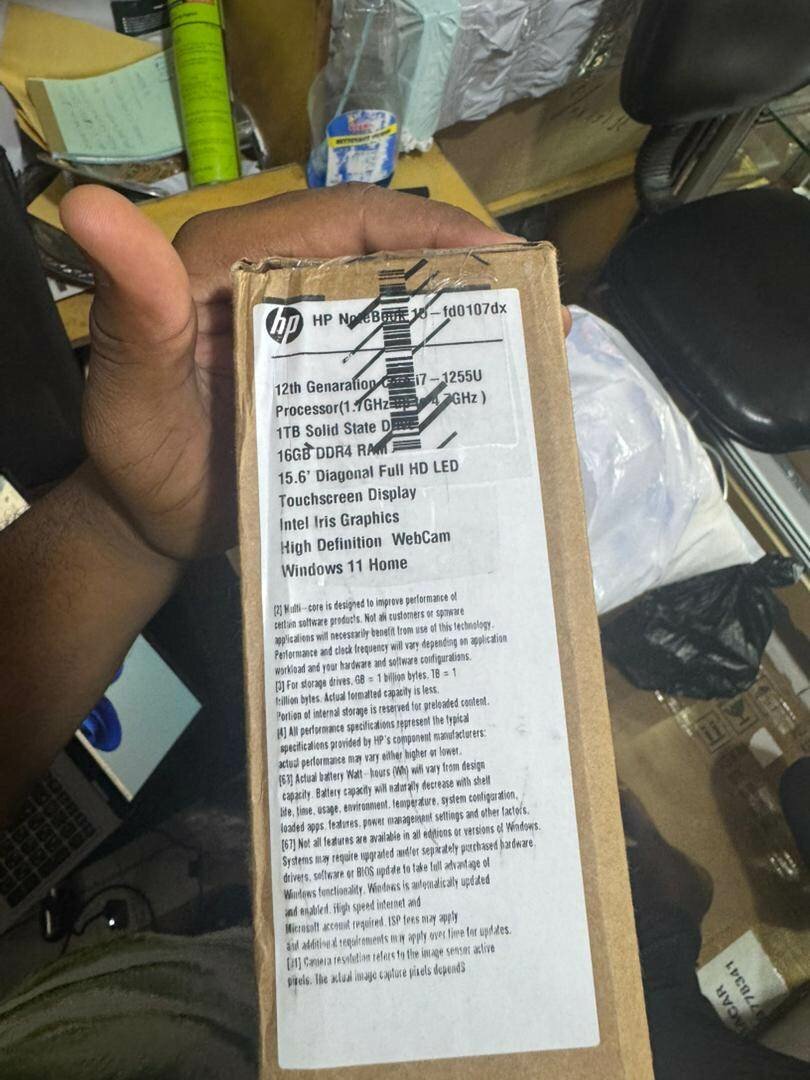 hp
HP NoteBook 15-fd0107dx
12th Genaration Core i7-1255U
Processor(1.7GHz up to 4.7GHz )
1TB Solid State Drive
16GB DDR4 RAM
15.6' Diagonal Full HD LED
Touchscreen Display
Intel Iris Graphics
High Definition WebCam
Windows 11 Home
[2] Multi-core is designed to improve performance of
certain software products. Not all customers or
applications will necessarily benefit from use of this technology.
Performance and clock frequency will vary depending on application
workload and your hardware and software configurations.
[3] For storage drives, GB = 1 billion bytes. TB = 1
trillion bytes. Actual formatted capacity is less.
Portion of internal storage is reserved for preloaded content.
[4] All performance specifications represent the typical
specifications provided by HP's component manufacturers:
actual performance may vary either higher or lower.
[63] Actual battery Watt-hours (Wh) will vary from design
capacity. Battery capacity will naturally decrease with shelf
life, time, usage, environment, temperature, system configuration,
loaded apps, features, power management settings and other factors.
[67] Not all features are available in all editions or versions of Windows.
Systems may require upgraded and/or separately purchased hardware,
drivers, software or BIOS update to take full advantage of
Windows functionality. Windows is automatically updated
and enabled. High speed internet and
Microsoft account required. ISP fees may apply
and additional requirements may apply over time for updates.
Camera resolution refers to the image sensor active
pixels. The actual image capture pixels dependS